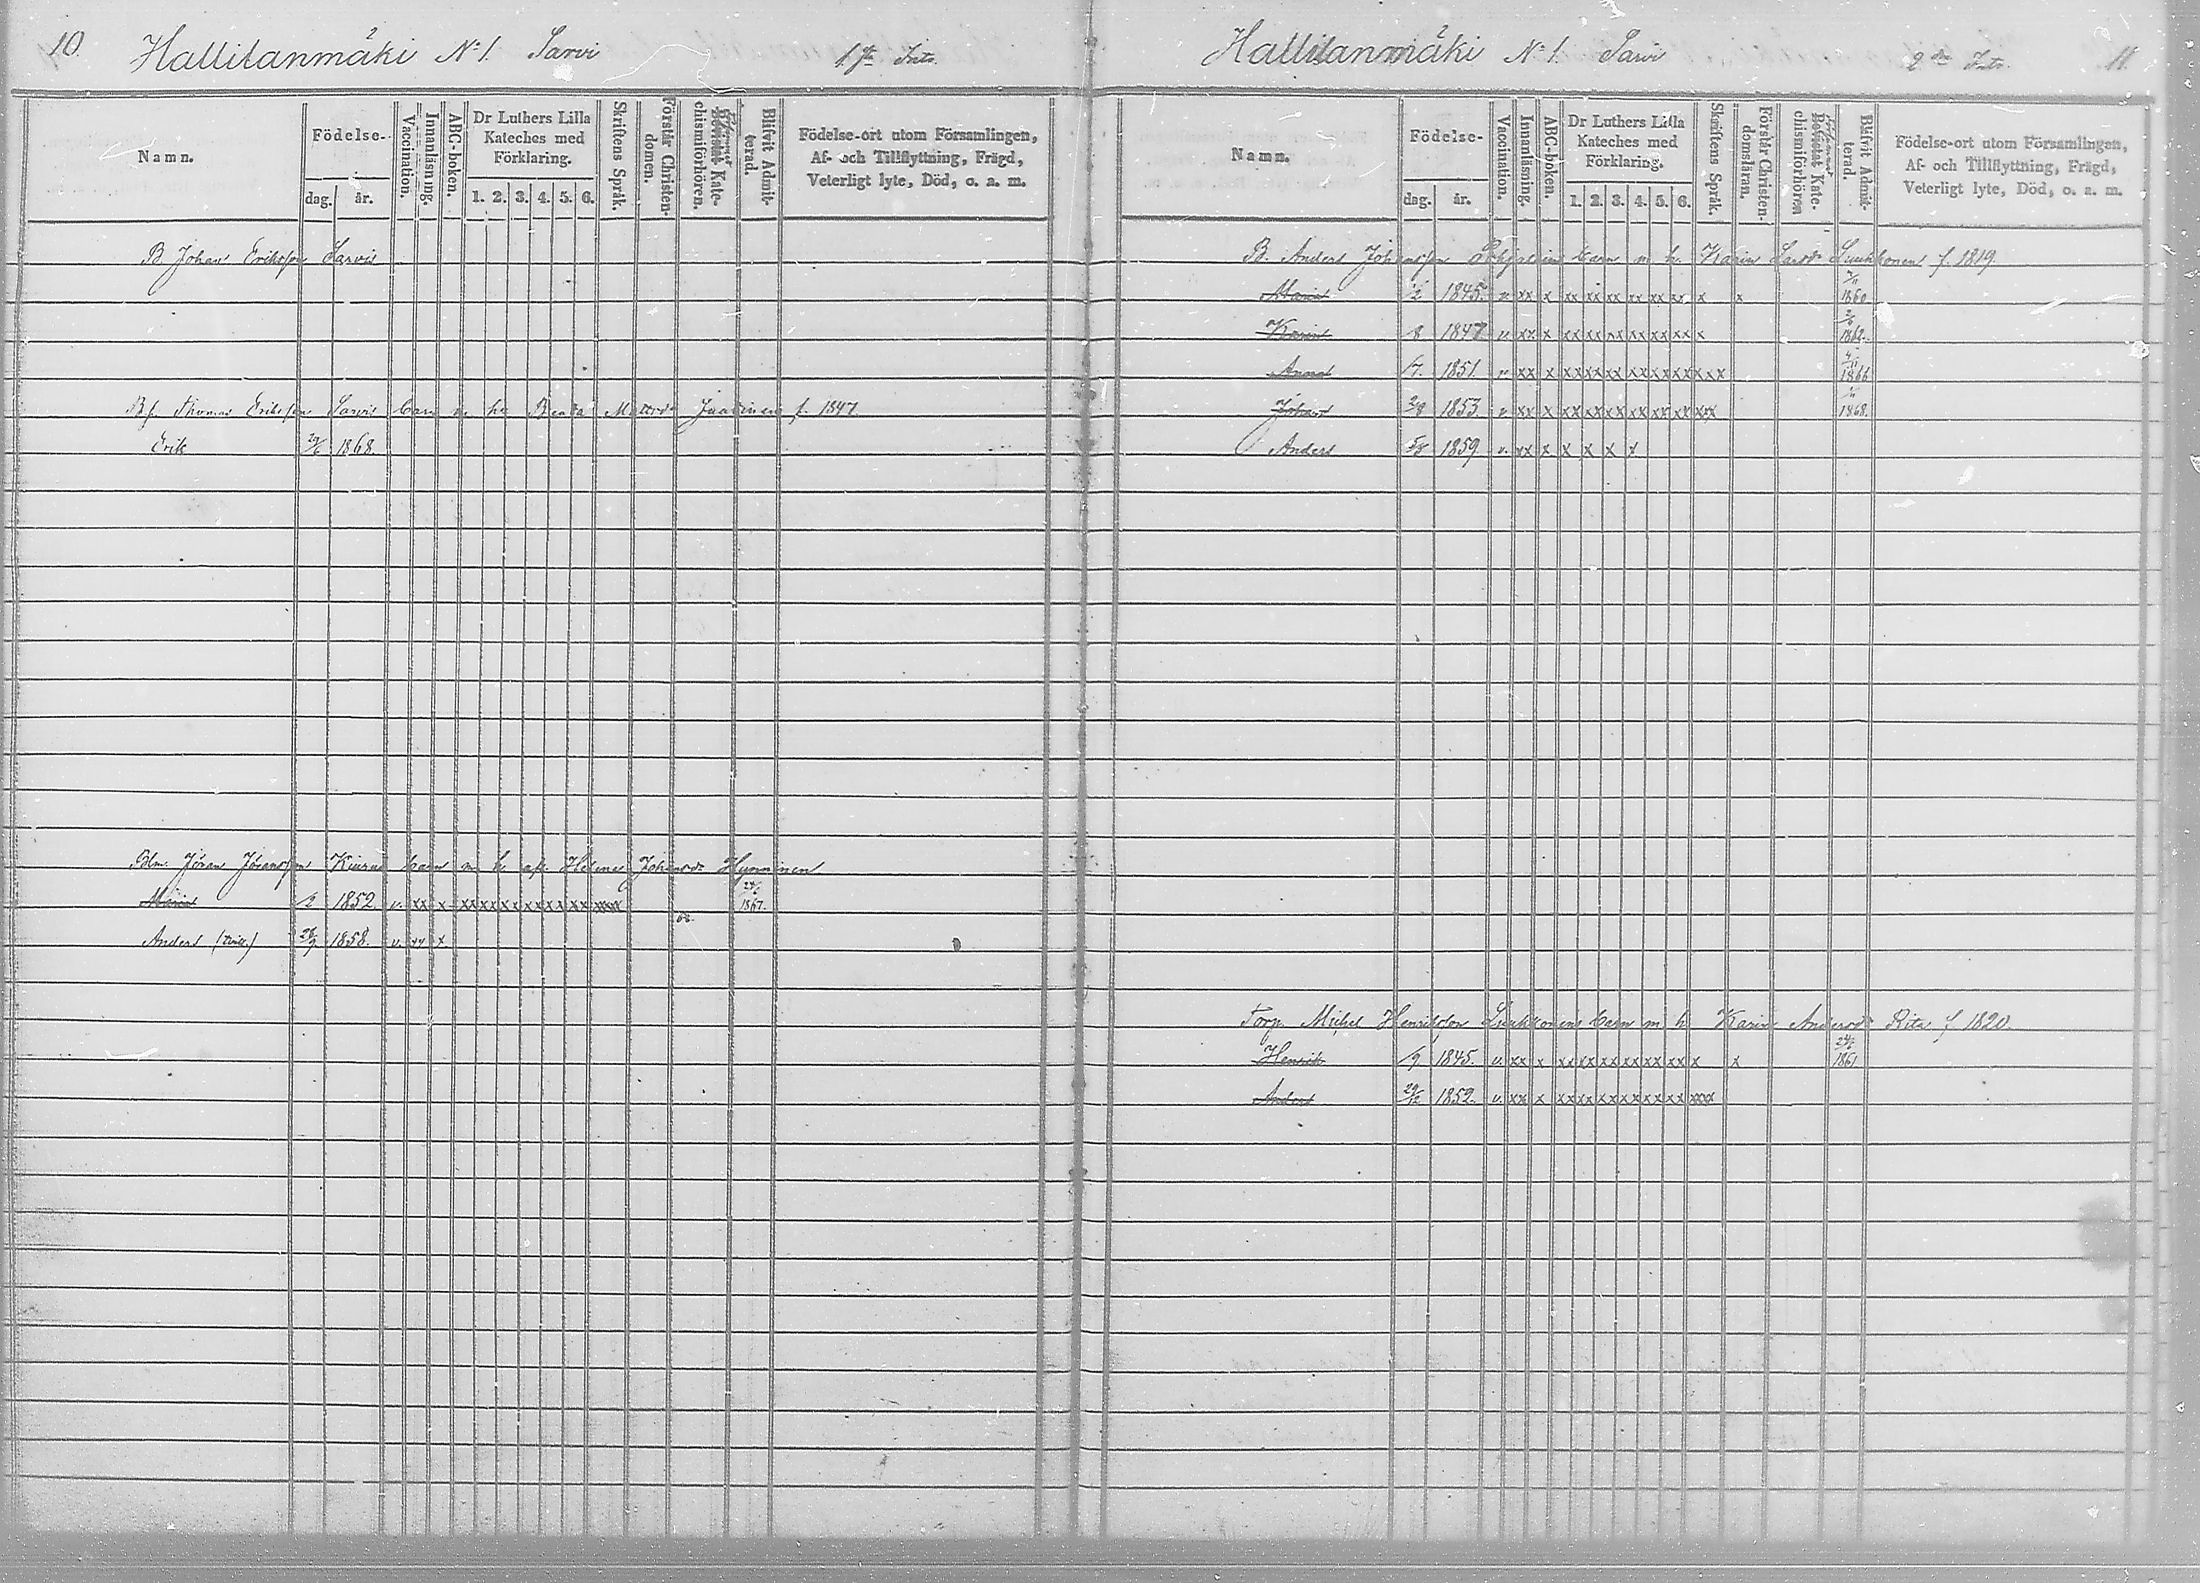 10. Hallilanmäki No 1. Sarvi 1sta Inte.
Namn.
Födelse-
dag. år.
Vaccination.
Innanläsning.
ABC-boken.
Dr Luthers Lilla Kateches med Förklaring.
1. 2. 3. 4. 5. 6.
Skriftens Språk.
Förstår Christendomen.
Bevistat Katechismiförhören.
Blifvit Admitterad.
Födelse-ort utom Församlingen,
Af- och Tillflyttning, Frägd,
Veterligt lyte, Död, o. a. m.
B. Johan Eriksson Sarvis
Bf. Thomas Eriksson Sarvis barn m. h. Beata Matsdr f. 1847.
Erik 29/6 1868.
Göran Göransson barn m h Helena Johansdr Hynninen
Maria /2 1852. v. xx x xx xx xx xx xx xx xxxx 1867.
Anders (tvill.) 28/9 1858. v. xx x
Hallilanmäki No 1. Sarvi 2dra Inte. 11.
Namn.
Födelse-
dag. år.
Vaccination.
Innanläsning.
ABC-boken.
Dr Luthers Lilla Kateches med Förklaring.
1. 2. 3. 4. 5. 6.
Skriftens Språk.
Förstår Christendomsläran.
Bevistat Katechismiförhören
Blifvit Admitterad.
Födelse-ort utom Församlingen,
Af- och Tillflyttning, Frägd,
Veterligt lyte, Död, o. a. m.
B. Anders Johansson barn m. h. Karin Larsdr Suukkonen f. 1819.
Maria 1845. v. xx x xx xx xx xx xx xx x x 1860
Karin 8 1847 v. xx x xx xx xx xx xx xx x 1862.
Anna 17. 1851. v. xx x xx xx xx xx xx xx xx 1866
Johan 2/8 1853. v. xx x xx xx xx xx xx xx xxx 1868.
Anders 5/8 1859. v. xx x x x x x
Torp. Michel Henriksson Suukkonens barn m h Karin Andersdr Rita f. 1820.
Henrik /9 1845. v. xx x xx xx xx xx xx xx x x 1861
Anders 29/12 1852. v. xx x xx xx xx xx xx xx xxxx